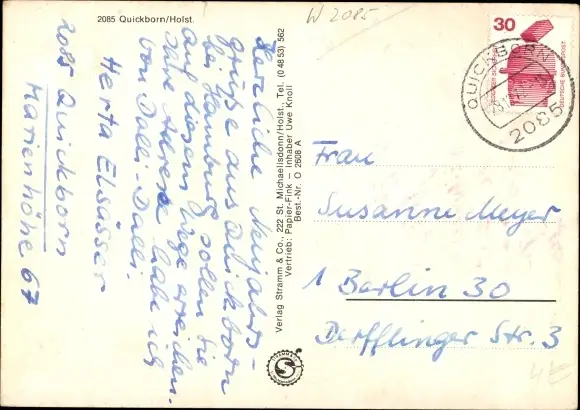 2085 Quickborn/Holst.
W 2085
Herzliche Neujahrs-
grüße aus Quickborn
bei Hamburg sollen Sie
auf diesem Wege erreichen.
Ihre Adresse habe ich
von Dalli-Dalli.
Herta Elsässer
2085 Quickborn
Marienhöhe 67
Verlag Stramm & Co., 222 St. Michaelisdonn/Holst., Tel. (0 48 53) 562
Vertrieb: Papier-Fink – Inhaber Uwe Knoll
Best.-Nr. O 2608 A
30
DEUTSCHE BUNDESPOST
QUICKBORN
2085
Frau
Susanne Meyer
1 Berlin 30
Derfflinger Str. 3